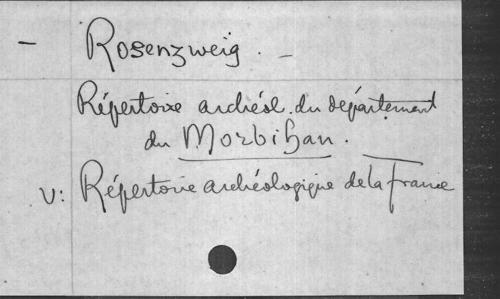 — Rosenzweig. —
Répertoire archéol. du département
du Morbihan.
V: Répertoire archéologique de la France